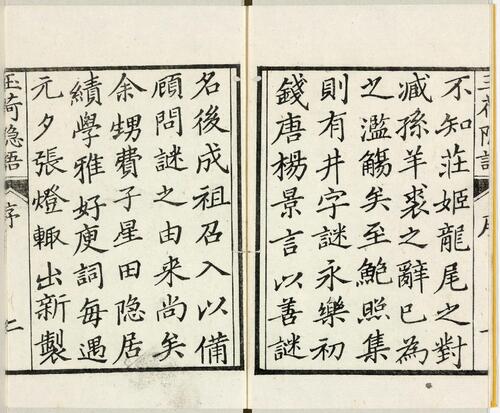 不知莊姬龍尾之對
臧孫羊裘之辭已為
之濫觴矣至鮑照集
則有井字謎永樂初
錢唐楊景言以善謎
名後成祖召入以備
顧問謎之由來尚矣
余甥費子星田隐居
績學雅好廋詞每遇
元夕張燈輙出新製
玉荷隐語
序
二